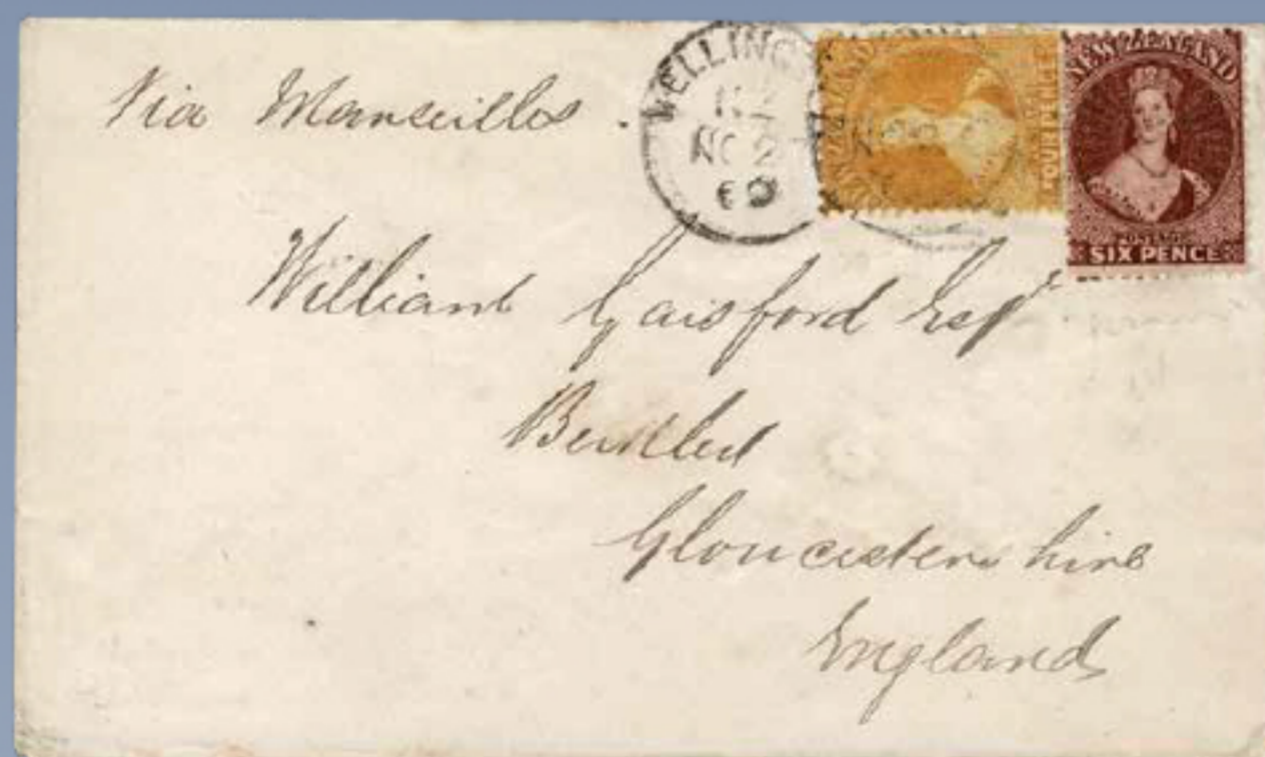 Via Marseilles.
WELLING
NZ
NO 2
69
NEW ZEALAND
FOUR PENCE
NEW ZEALAND
POSTAGE
SIX PENCE
William Gaisford Esqr
Gloucestershire
England